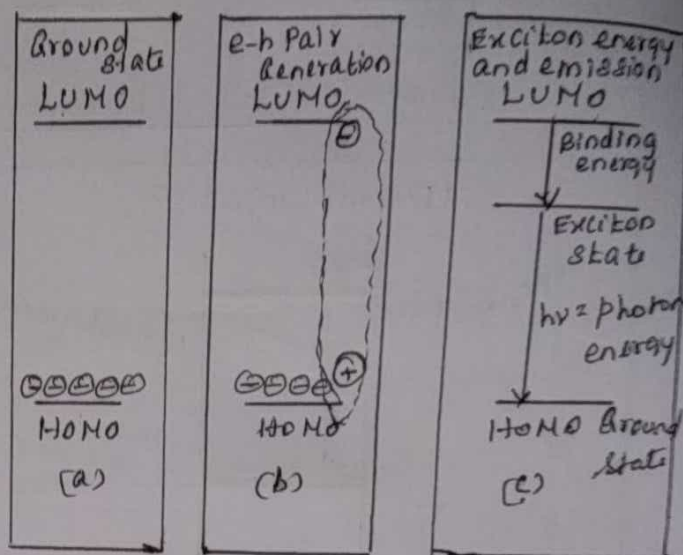 Ground
State
LUMO
⊖⊖⊖⊖⊖
HOMO
(a)
e-h Pair
Generation
LUMO
⊖
⊖⊖⊖⊖ ⊕
HOMO
(b)
Exciton energy
and emission
LUMO
Binding
energy
Exciton
State
hν = photon
energy
HOMO Ground
State
(c)